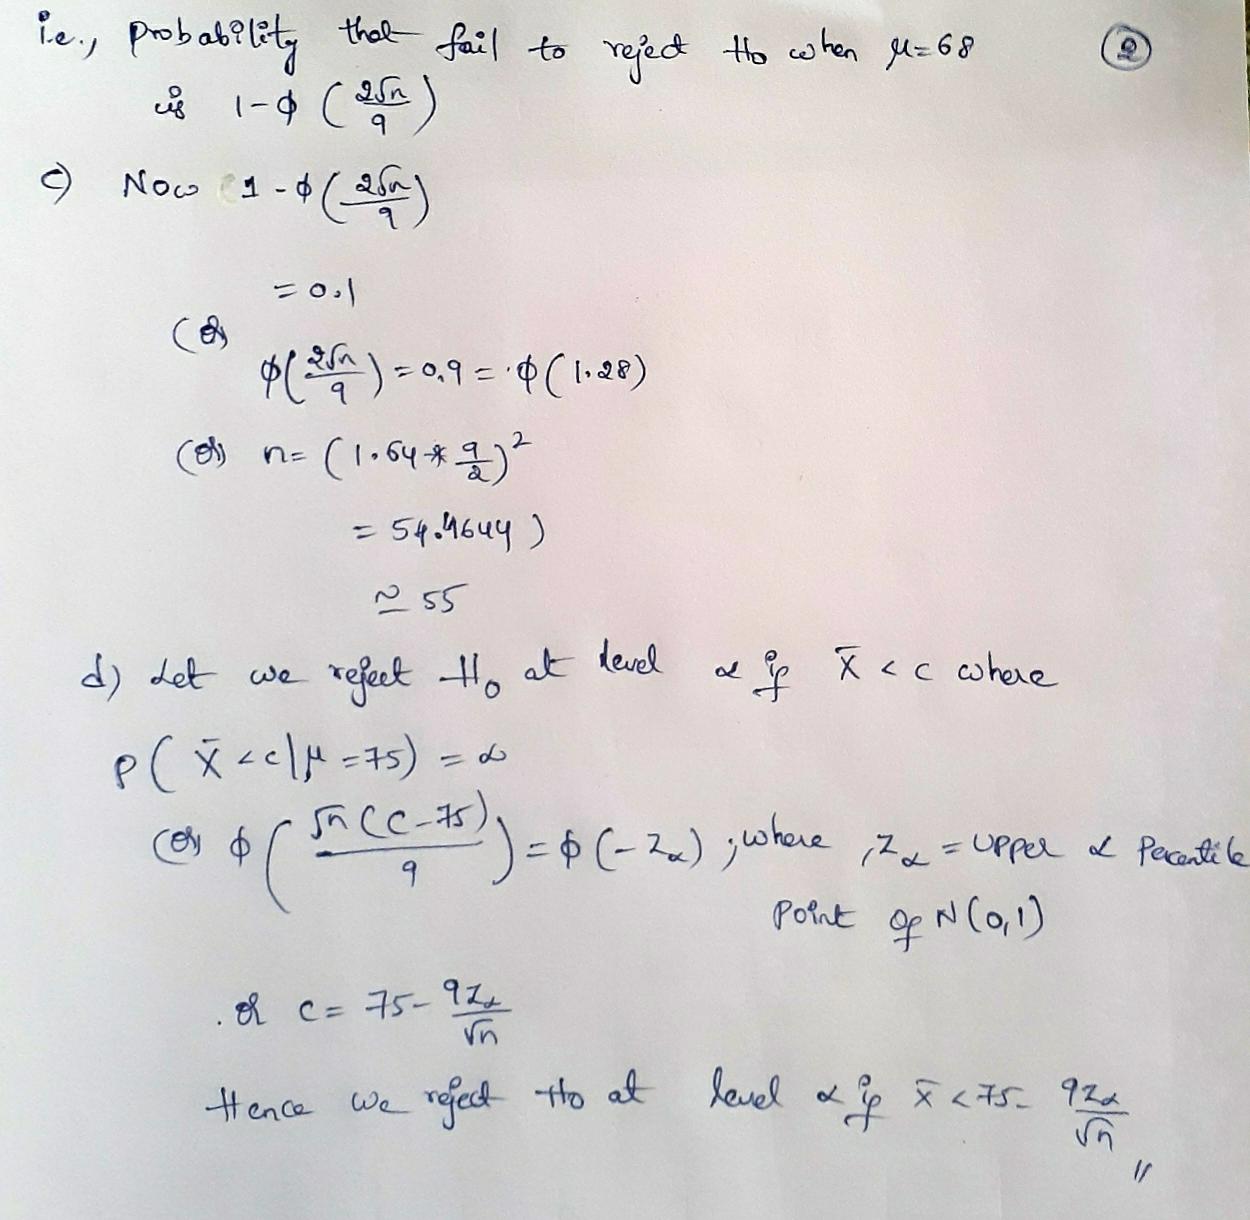 i.e., probability that fail to reject H0 when μ=68
②
is 1-ϕ (2√n/9)
c) Now 1-ϕ(2√n/9)
=0.1
(or)
ϕ(2√n/9)=0.9=ϕ(1.28)
(or) n=(1.64*9/2)²
=54.4644)
≃55
d) Let we reject H₀ at level α if x̄<c where
P(x̄<c|μ=75)=α
(or) ϕ(√n(c-75)/9)=ϕ(-Zα); where, Zα=upper α Percentile
Point of N(0,1)
. or c=75-9Zα/√n
Hence we reject H0 at level α if x̄<75-9Zα/√n //